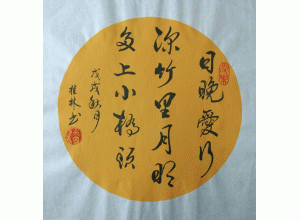 日晚愛行
深竹里月明
多上小橋頭
戊戌秋月
桂林书